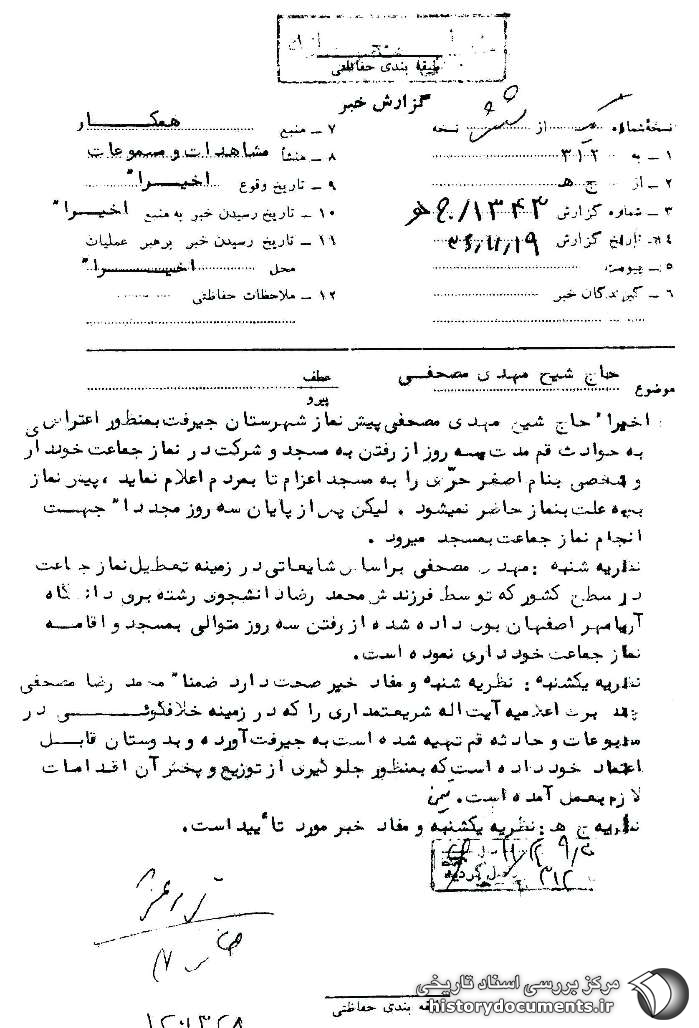 طبقه بندی حفاظتی
گزارش خبر
نسخه شماره از شش نسخه
۱ ـ به ۳۱۲
۲ ـ از ج ه‍
۳ ـ شماره گزارش ۱۳۴۳/
۴ ـ تاریخ گزارش ۳۶/۱۱/۱۹
۵ ـ پیوست
۶ ـ گیرندگان خبر
۷ ـ منبع همکار
۸ ـ منشأ مشاهدات و مسموعات
۹ ـ تاریخ وقوع اخیرا"
۱۰ ـ تاریخ رسیدن خبر به منبع اخیرا"
۱۱ ـ تاریخ رسیدن خبر برهبر عملیات
محل اخیرا"
۱۲ ـ ملاحظات حفاظتی
موضوع حاج شیخ مهدی مصحفی
عطف
پیرو
اخیرا" حاج شیخ مهدی مصحفی پیش نماز شهرستان جیرفت بمنظور اعتراض
به حوادث قم مدت سه روز از رفتن به مسجد و شرکت در نماز جماعت خوددار
و شخصی بنام اصغر حری را به مسجد اعزام تا بمردم اعلام نماید ، پیش نماز
علت بنماز حاضر نمیشود . لیکن پس از پایان سه روز مجددا" جهت
انجام نماز جماعت بمسجد میرود .
نظریه شنبه : مهدی مصحفی براساس شایعاتی در زمینه تعطیل نماز جماعت
در سطح کشور که توسط فرزندش محمد رضا دانشجوی رشته برق دانشگاه
آریامهر اصفهان بوی داده شده از رفتن سه روز متوالی بمسجد و اقامه
نماز جماعت خودداری نموده است.
نظریه یکشنبه : نظریه شنبه و مفاد خبر صحت دارد ضمنا" محمد رضا مصحفی
چند برگ اعلامیه آیت اله شریعتمداری را که در زمینه خلافگوئی در
مطبوعات و حادثه قم تهیه شده است به جیرفت آورده و بدوستان قابل
اعتماد خود داده است که بمنظور جلوگیری از توزیع و پخش آن اقدامات
لازم بعمل آمده است.
نظریه ج ه‍ : نظریه یکشنبه و مفاد خبر مورد تأیید است.
۳۱۲
طبقه بندی حفاظتی
۱۲۰۱۳۲۸
مرکز بررسی اسناد تاریخی
historydocuments.ir